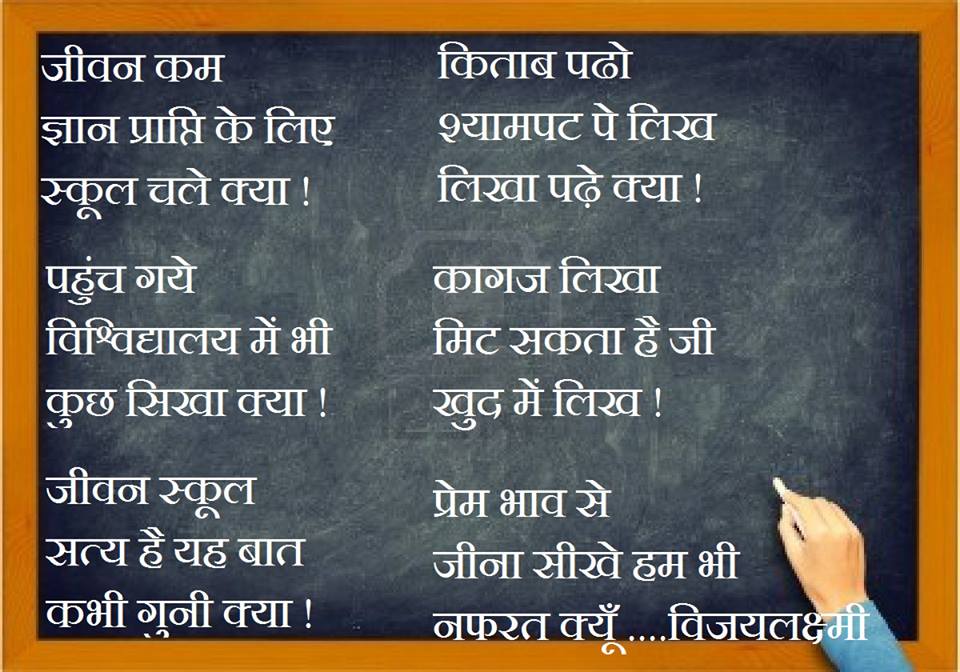 जीवन कम
ज्ञान प्राप्ति के लिए
स्कूल चले क्या !
पहुंच गये
विश्विद्यालय में भी
कुछ सिखा क्या !
जीवन स्कूल
सत्य है यह बात
कभी गुनी क्या !
किताब पढो
श्यामपट पे लिख
लिखा पढ़े क्या !
कागज लिखा
मिट सकता है जी
खुद में लिख !
प्रेम भाव से
जीना सीखे हम भी
नफरत क्यूँ ....विजयलक्ष्मी